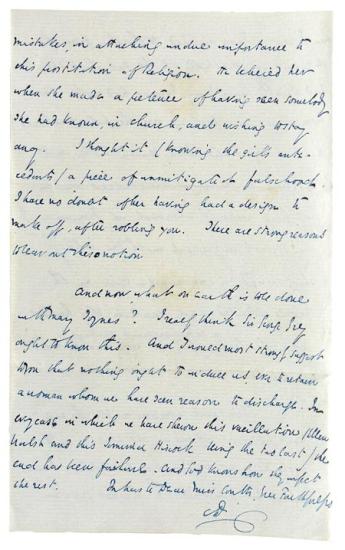 mistakes, in attaching undue importance to
this prostitution of Religion. He believed her
when she made a pretence of having seen somebody
she had known, in church, and wishing to stay
away. I thought it (knowing the girl's ante-
cedents) a piece of unmitigated falsehood.
I have no doubt of her having had a design to
make off, after robbing you. There are strong reasons
to bear out this notion
And now what on earth is to be done
with Mary Joynes? I really think Sir George Grey
ought to know this. And I would most strongly suggest
upon that nothing ought to induce us, ever to retain
a woman whom we have seen reason to discharge. In
every case in which we have shewn this vacillation (Ellen
Walsh and this Jemima Hiscock being the two last) the
end has been failure. And God knows how they infect
the rest. In haste Dear Miss Coutts, Ever Faithfully yrs
CD